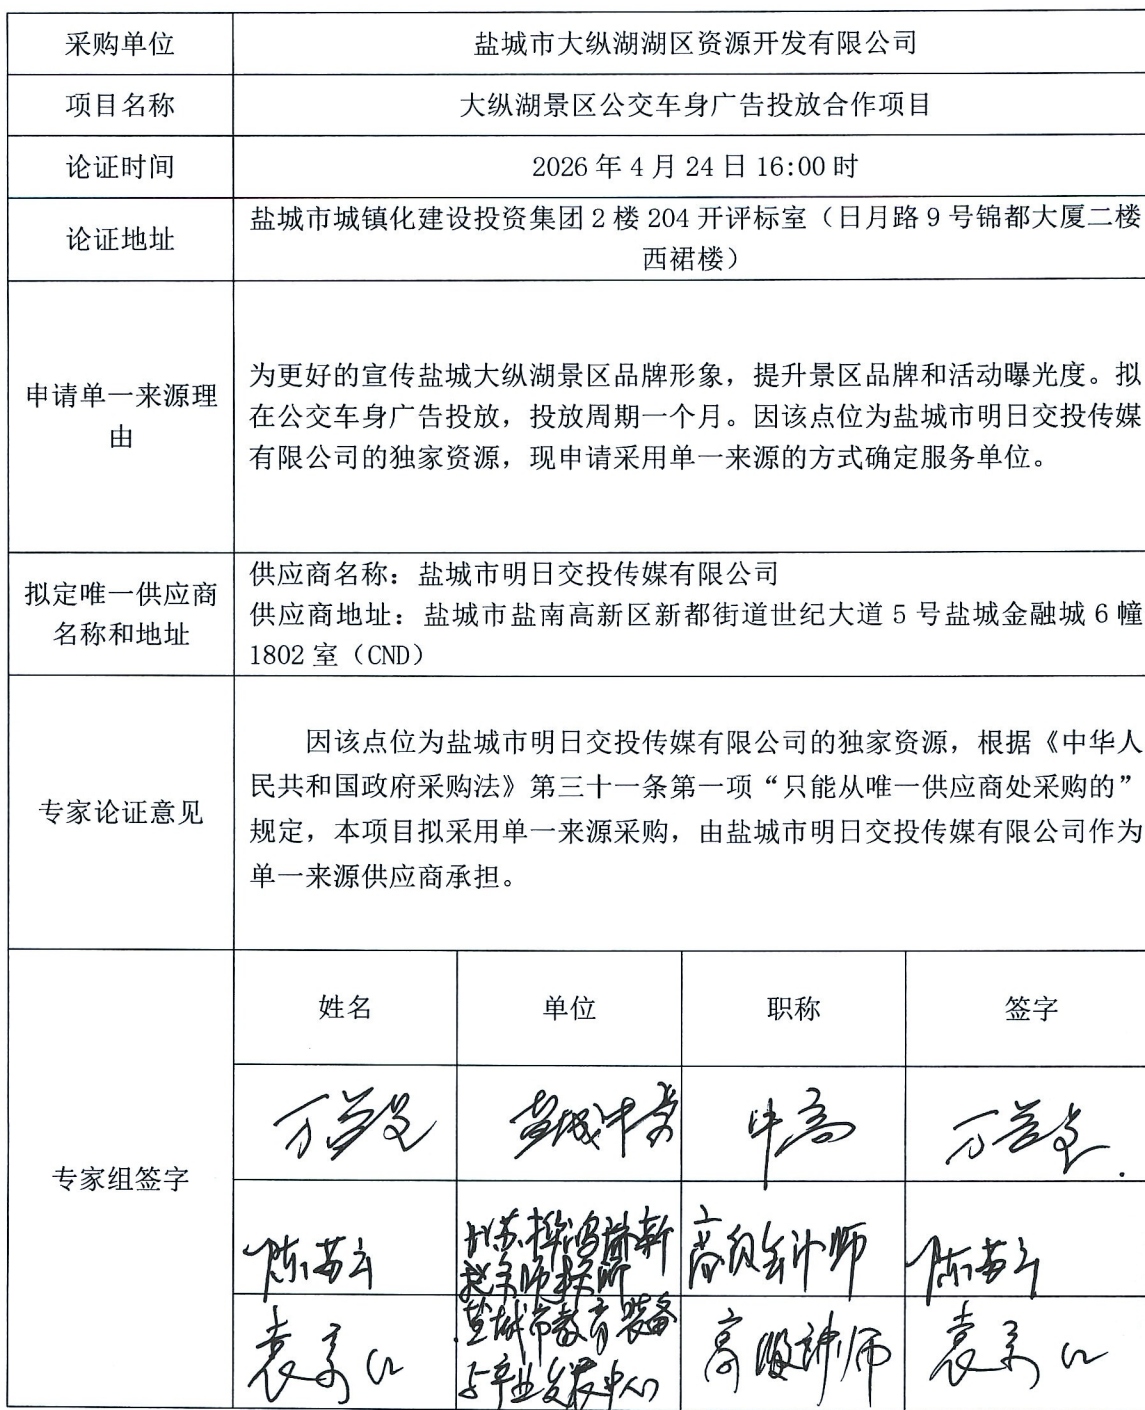 采购单位
盐城市大纵湖湖区资源开发有限公司
项目名称
大纵湖景区公交车身广告投放合作项目
论证时间
2026年4月24日16:00时
论证地址
盐城市城镇化建设投资集团2楼204开评标室（日月路9号锦都大厦二楼
西裙楼）
申请单一来源理
由
为更好的宣传盐城大纵湖景区品牌形象，提升景区品牌和活动曝光度。拟
在公交车身广告投放，投放周期一个月。因该点位为盐城市明日交投传媒
有限公司的独家资源，现申请采用单一来源的方式确定服务单位。
拟定唯一供应商
名称和地址
供应商名称：盐城市明日交投传媒有限公司
供应商地址：盐城市盐南高新区新都街道世纪大道5号盐城金融城6幢
1802室（CND）
专家论证意见
因该点位为盐城市明日交投传媒有限公司的独家资源，根据《中华人
民共和国政府采购法》第三十一条第一项“只能从唯一供应商处采购的”
规定，本项目拟采用单一来源采购，由盐城市明日交投传媒有限公司作为
单一来源供应商承担。
专家组签字
姓名
单位
职称
签字
中高
高级会计师
盐城市教育装备
与产业发展中心
高级讲师